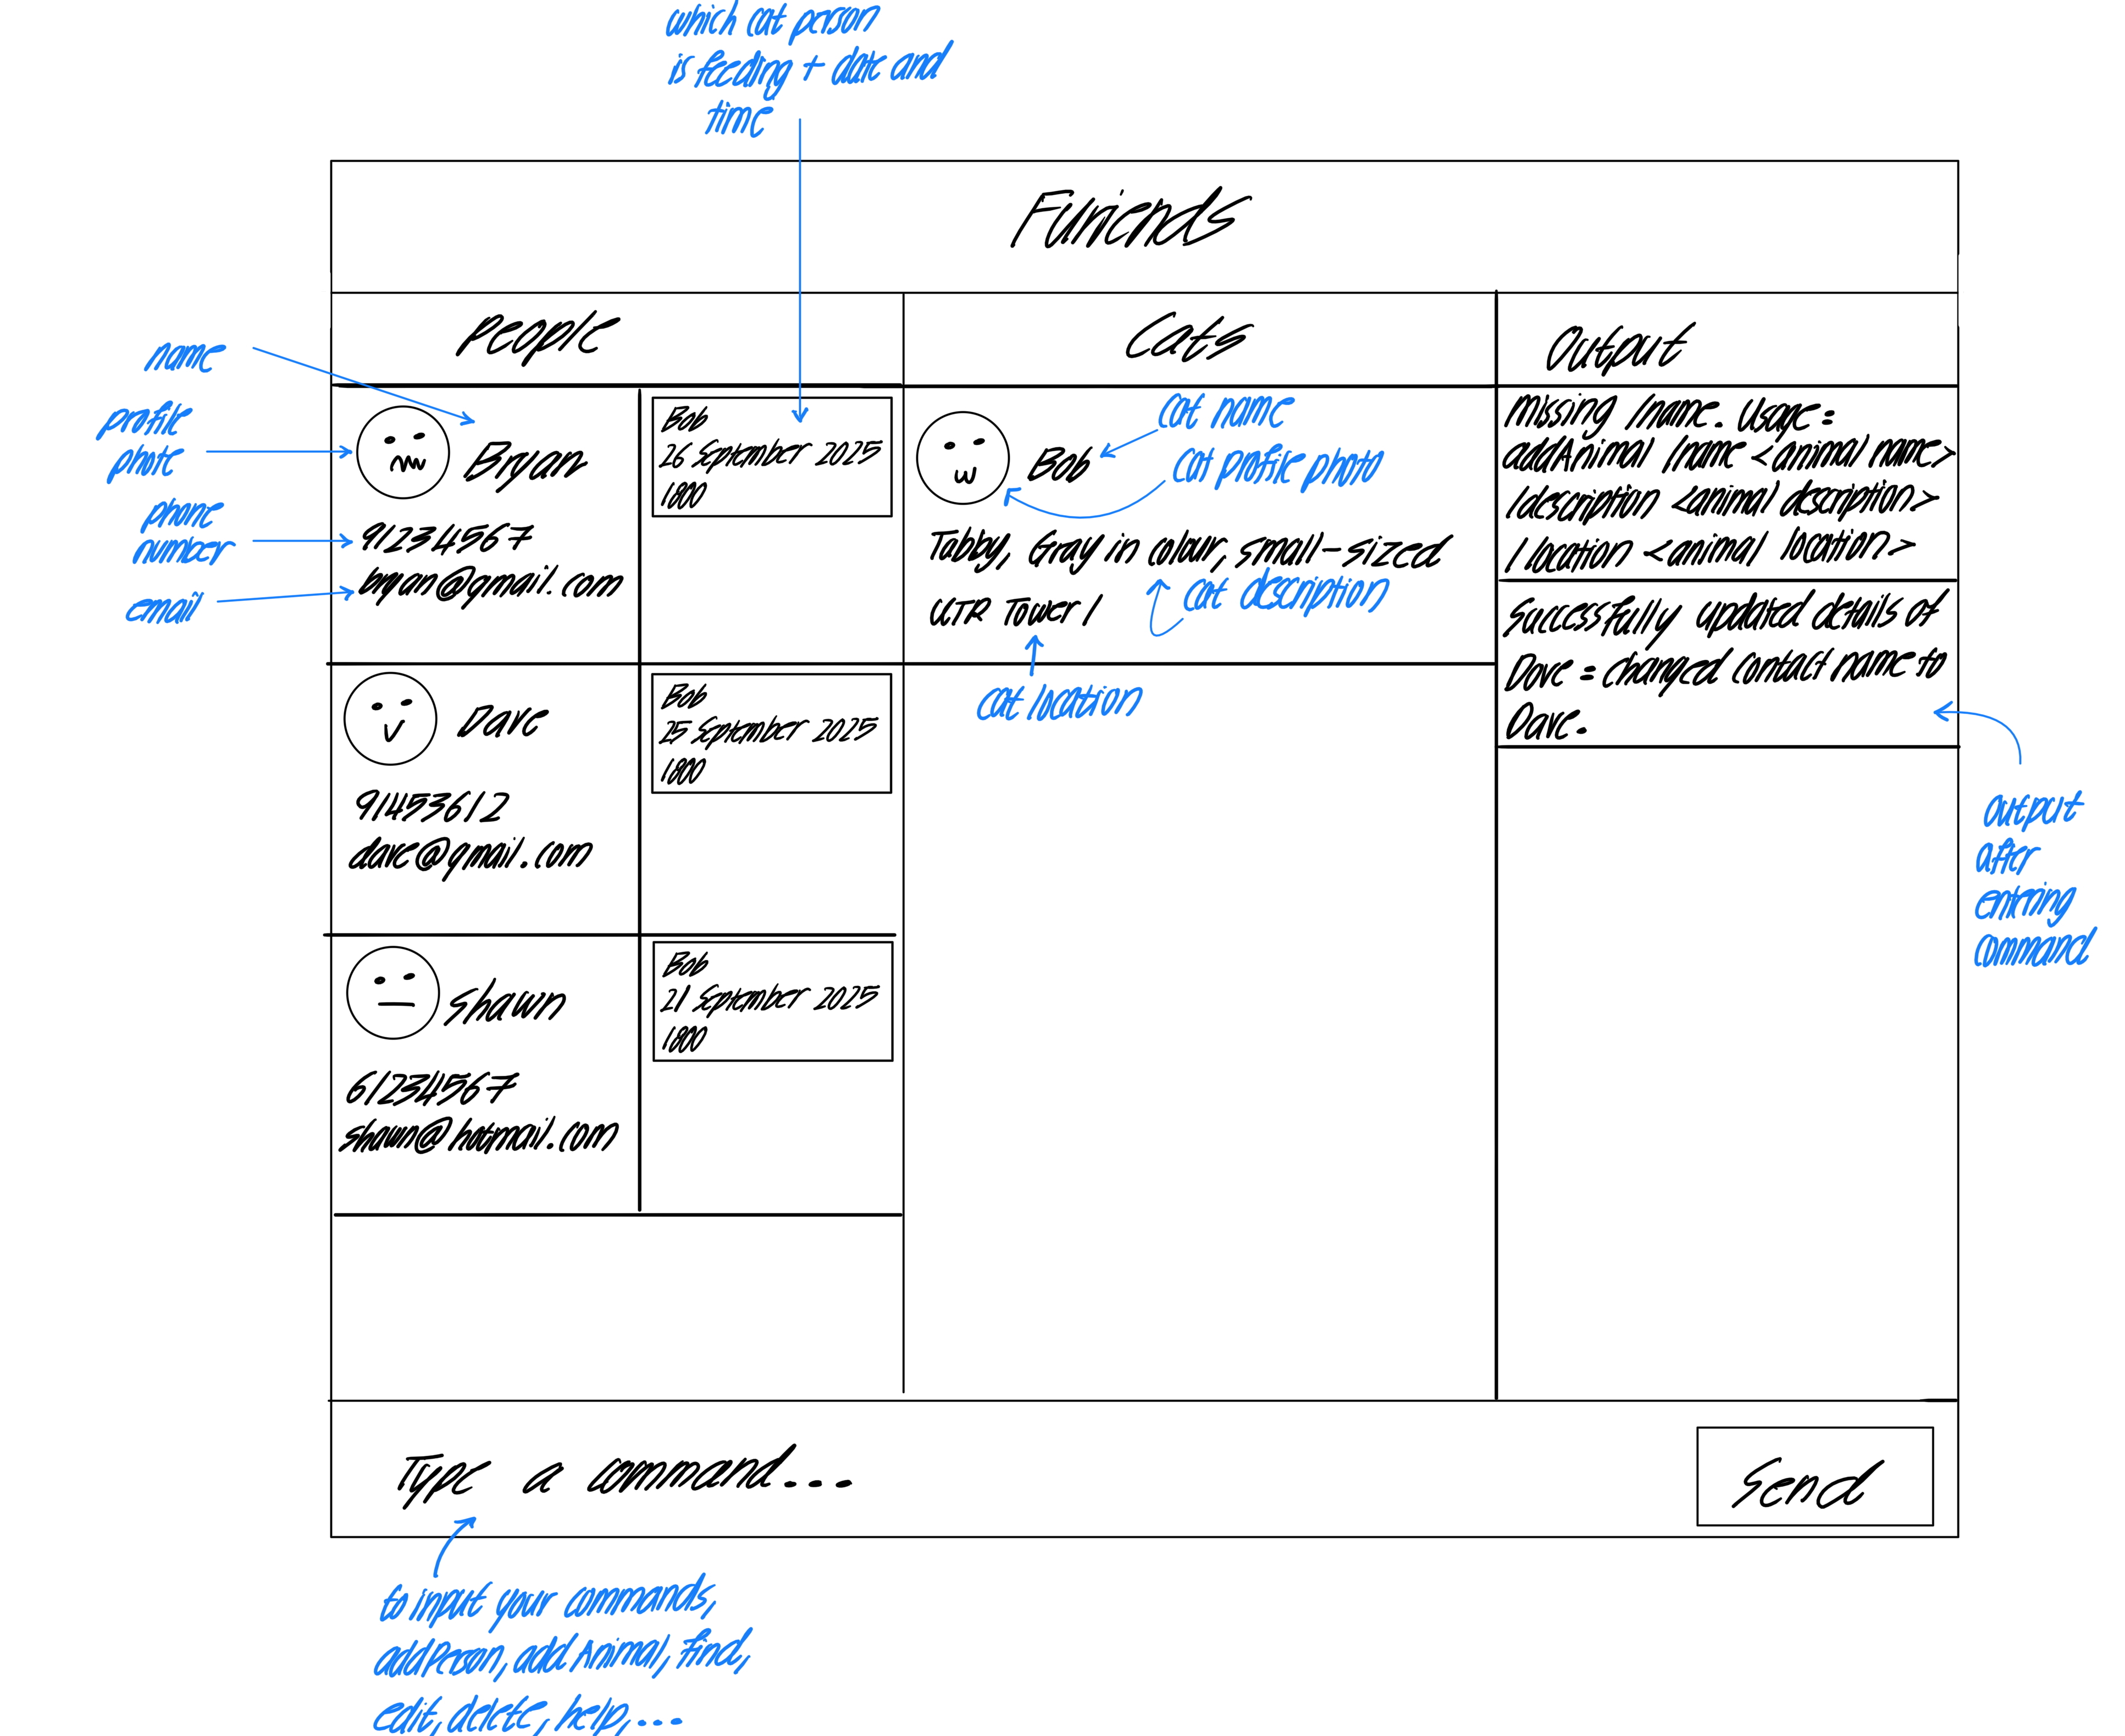 which cat person
is feeding + date and
time
Furiends
People
Cats
Output
name
profile
photo
phone
number
email
Bryan
91234567
bryan@gmail.com
Bob
26 September 2025
1800
Dave
91453612
dave@gmail.com
Bob
25 September 2025
1800
Shawn
61234567
shawn@hotmail.com
Bob
21 September 2025
1800
Bob
cat name
cat profile photo
Tabby, Gray in colour, small-sized
UTR Tower 1
cat description
cat location
Missing /name. Usage:
addAnimal /name <animal name>
/description <animal description>
/location <animal location>
Successfully updated details of
Dove : changed contact name to
Dave.
output
after
entering
command
Type a command....
Send
to input your commands,
addPerson, addAnimal, find,
edit, delete, help,....